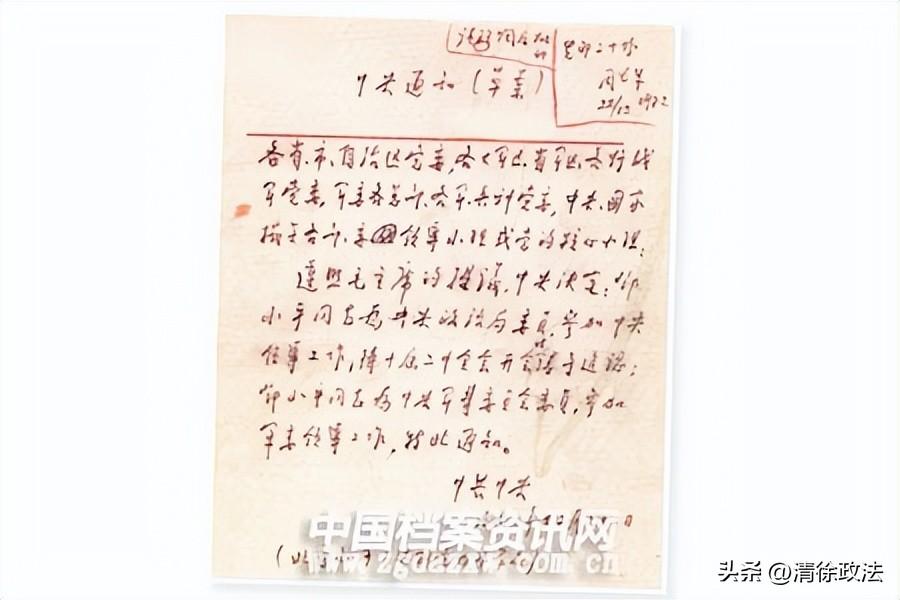 先印二十份
周恩来
22/12 1973
中央通知(草案)
各省、市、自治区党委,各大军区、省军区、各野战
军党委,军委各总部、各军兵种党委,中央、国家
机关各部、委领导小组或党的核心小组:
遵照毛主席的提议,中央决定:邓
小平同志为中央政治局委员,参加中央
领导工作,待十届二中全会开会时请予追认;
邓小平同志为中央军事委员会委员,参加
军委领导工作,特此通知。
中共中央
中国档案资讯网
www.zgdazxw.com.cn
头条 @清徐政法